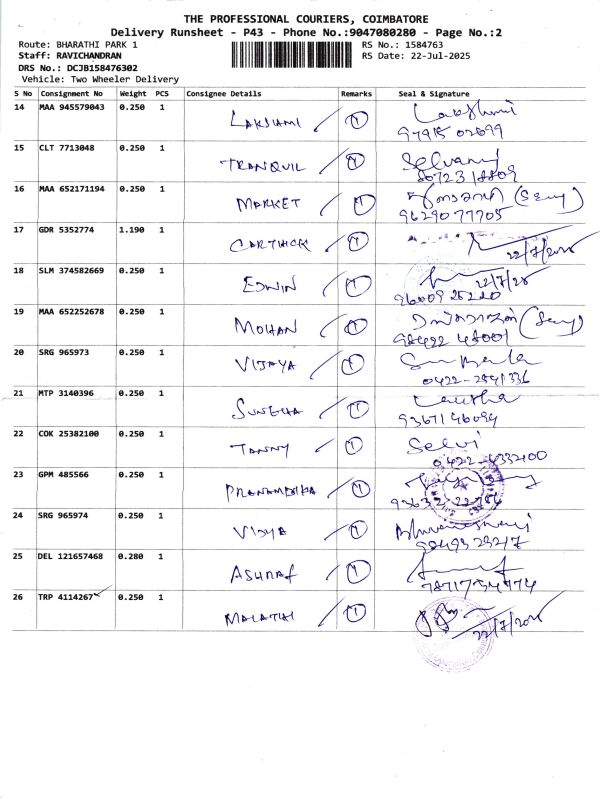 THE PROFESSIONAL COURIERS, COIMBATORE
Delivery Runsheet - P43 - Phone No.:9047080280 - Page No.:2
Route: BHARATHI PARK 1 RS No.: 1584763
Staff: RAVICHANDRAN RS Date: 22-Jul-2025
DRS No.: DCJB158476302
Vehicle: Two Wheeler Delivery
S No Consignment No Weight PCS Consignee Details Remarks Seal & Signature
14 MAA 945579043 0.250 1 LAKSHMI 1 Lakshmi
97915 02699
15 CLT 7713048 0.250 1 TRANQUIL 1 Selvaraj
16 MAA 652171194 0.250 1 MARKET 1
96290 77705
17 GDR 5352774 1.190 1 CARTHICK 1
22/7/2025
18 SLM 374582669 0.250 1 EDWIN 1 22/7/25
96009 25220
19 MAA 652252678 0.250 1 MOHAN 1
98422 48001
20 SRG 965973 0.250 1 VIJAYA 1
21 MTP 3140396 0.250 1 1
93671 46094
22 COK 25382100 0.250 1 TANNY 1 Selvi
0422-4332100
23 GPM 485566 0.250 1 1
24 SRG 965974 0.250 1 VIDYA 1 Bhuvaneswari
25 DEL 121657468 0.280 1 ASHRAF 1
26 TRP 4114267 0.250 1 MALATHI 1
22/7/2025